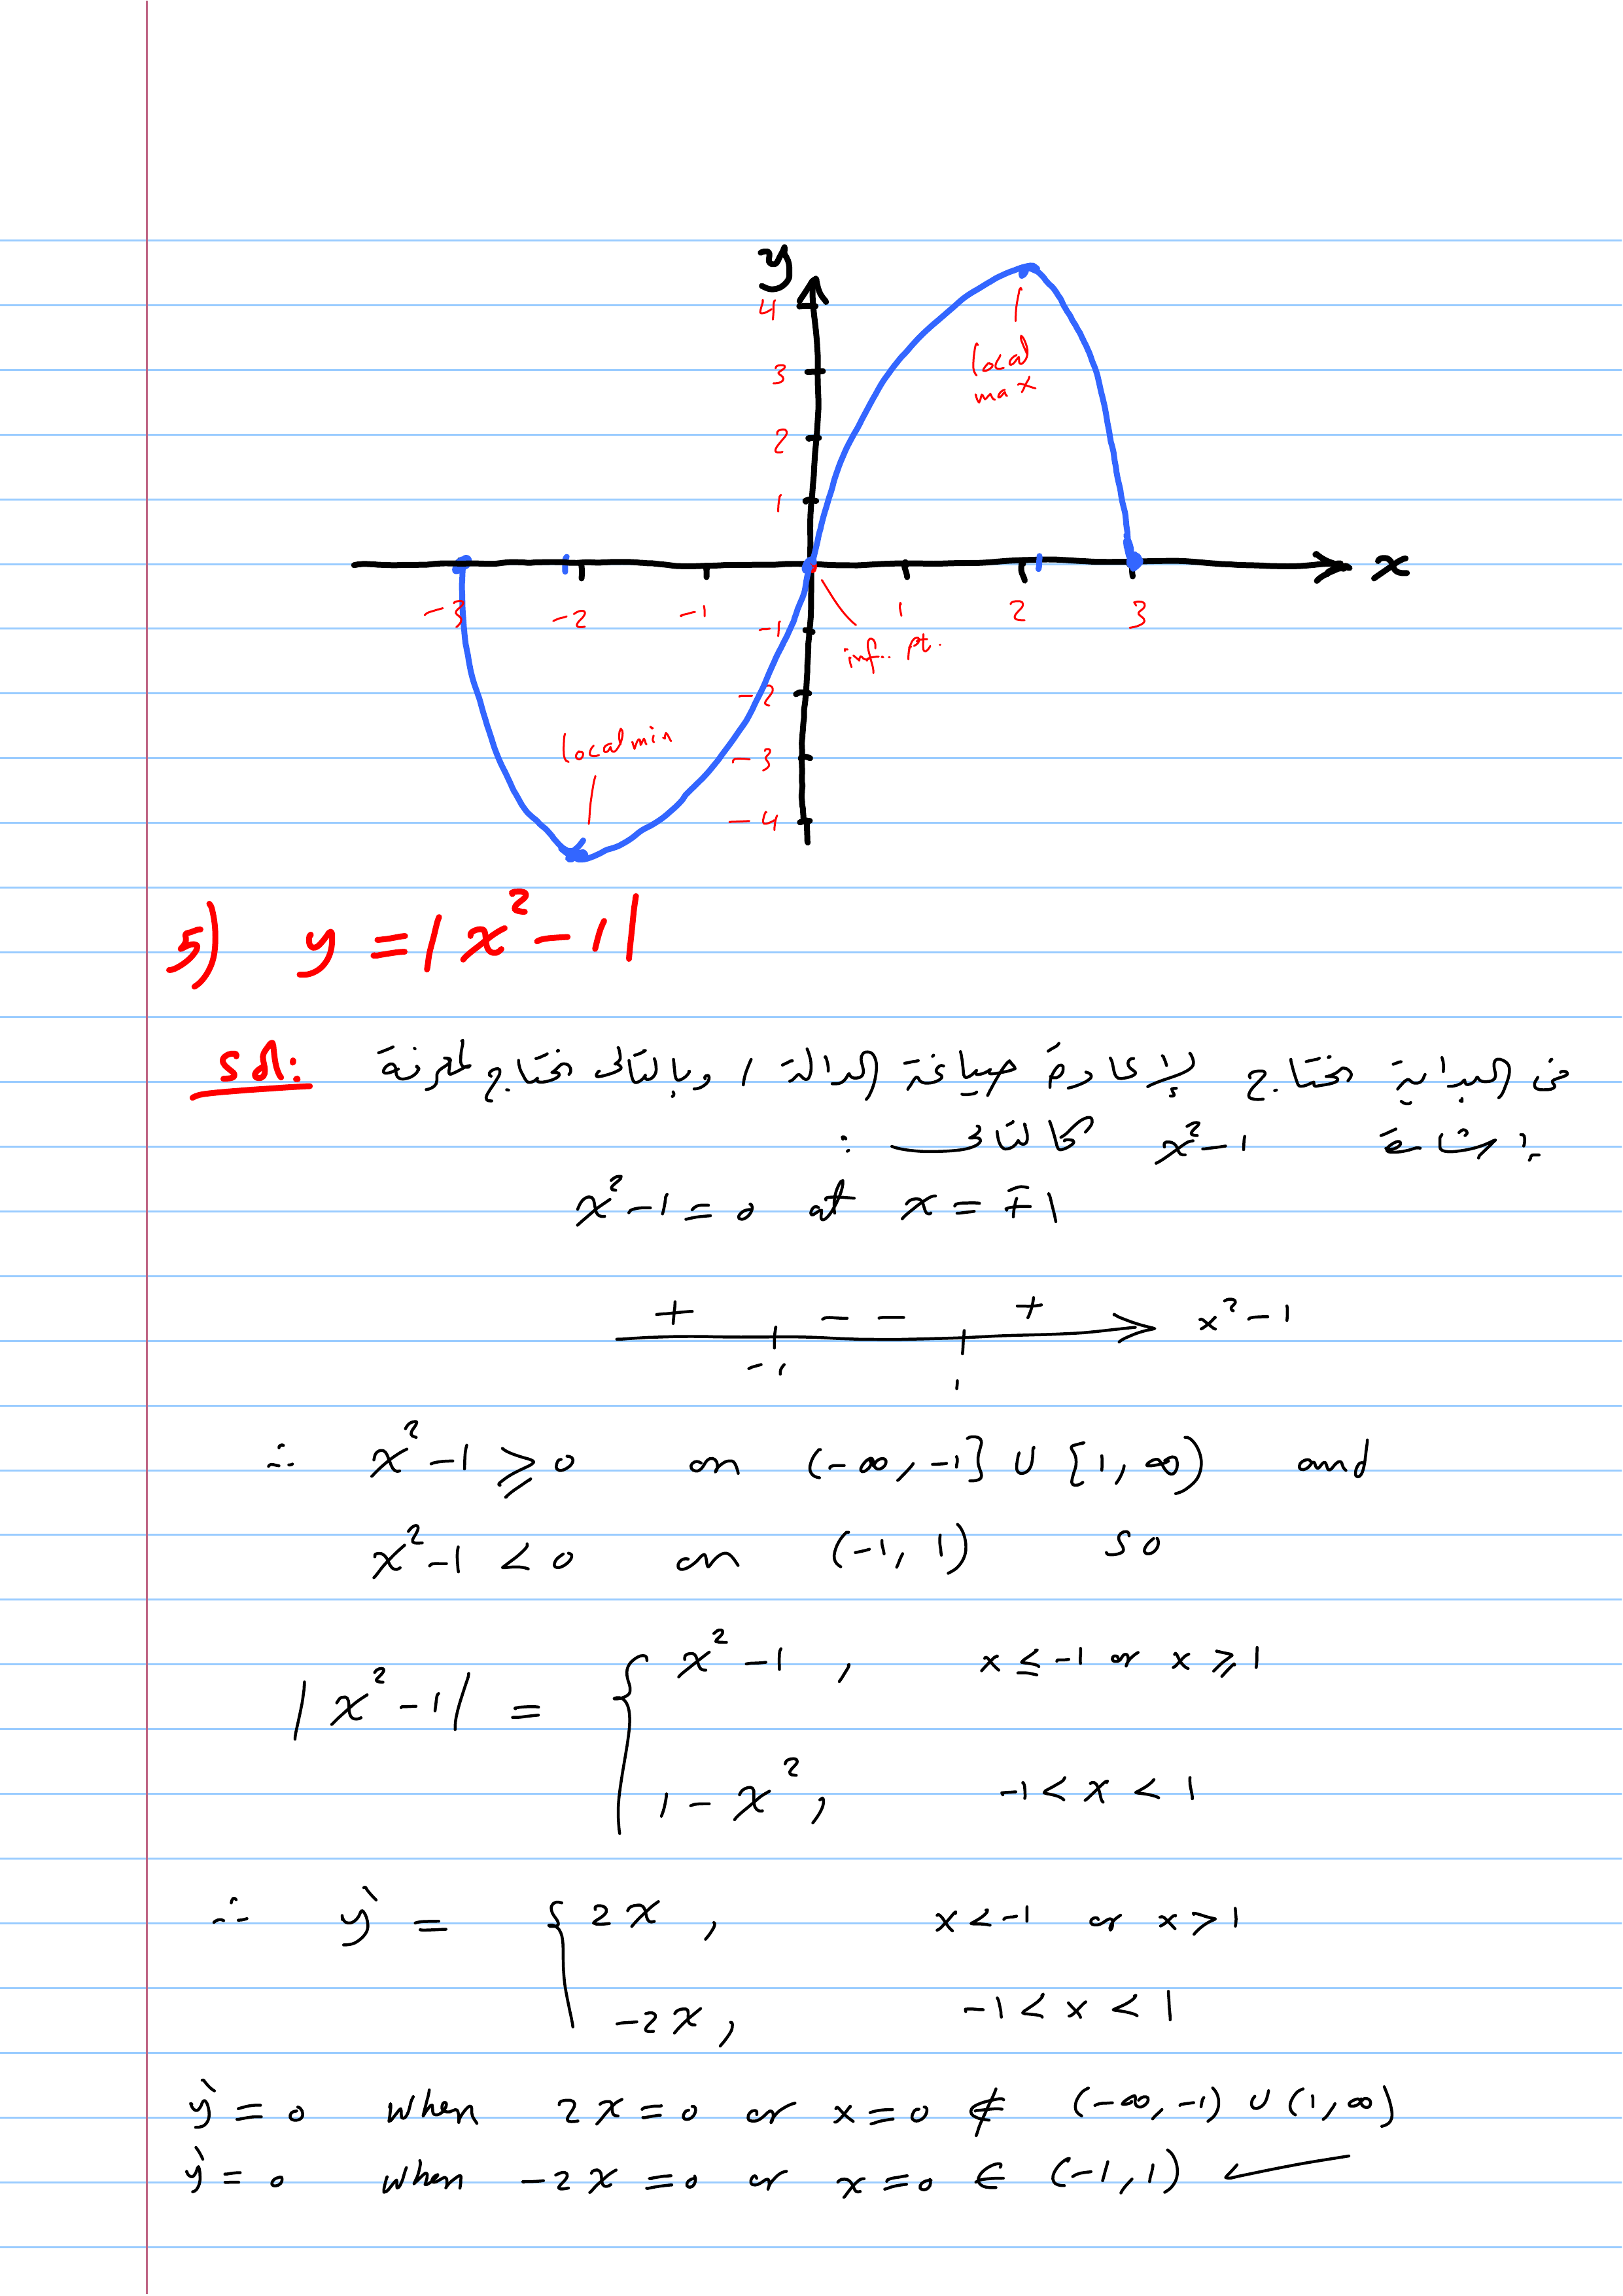 y
4
3
2
1
local
max
x
-3
-2
-1
1
2
3
-1
inf. pt.
-2
local min
-3
-4
5) y = |x² - 1|
sol: في البداية نحتاج لإعادة صياغة الدالة، وبالتالي نحتاج لمعرفة
إشارة x² - 1 كالتالي :
x² - 1 = 0 at x = ∓1
+ - - + x² - 1
-1 1
∴ x² - 1 ⩾ 0 on (-∞, -1] ∪ [1, ∞) and
x² - 1 < 0 on (-1, 1) so
|x² - 1| = { x² - 1 , x ≤ -1 or x ⩾ 1
1 - x² , -1 < x < 1
∴ y` = { 2x , x < -1 or x > 1
-2x , -1 < x < 1
y` = 0 when 2x = 0 or x = 0 ∉ (-∞, -1) ∪ (1, ∞)
y` = 0 when -2x = 0 or x = 0 ∈ (-1, 1)